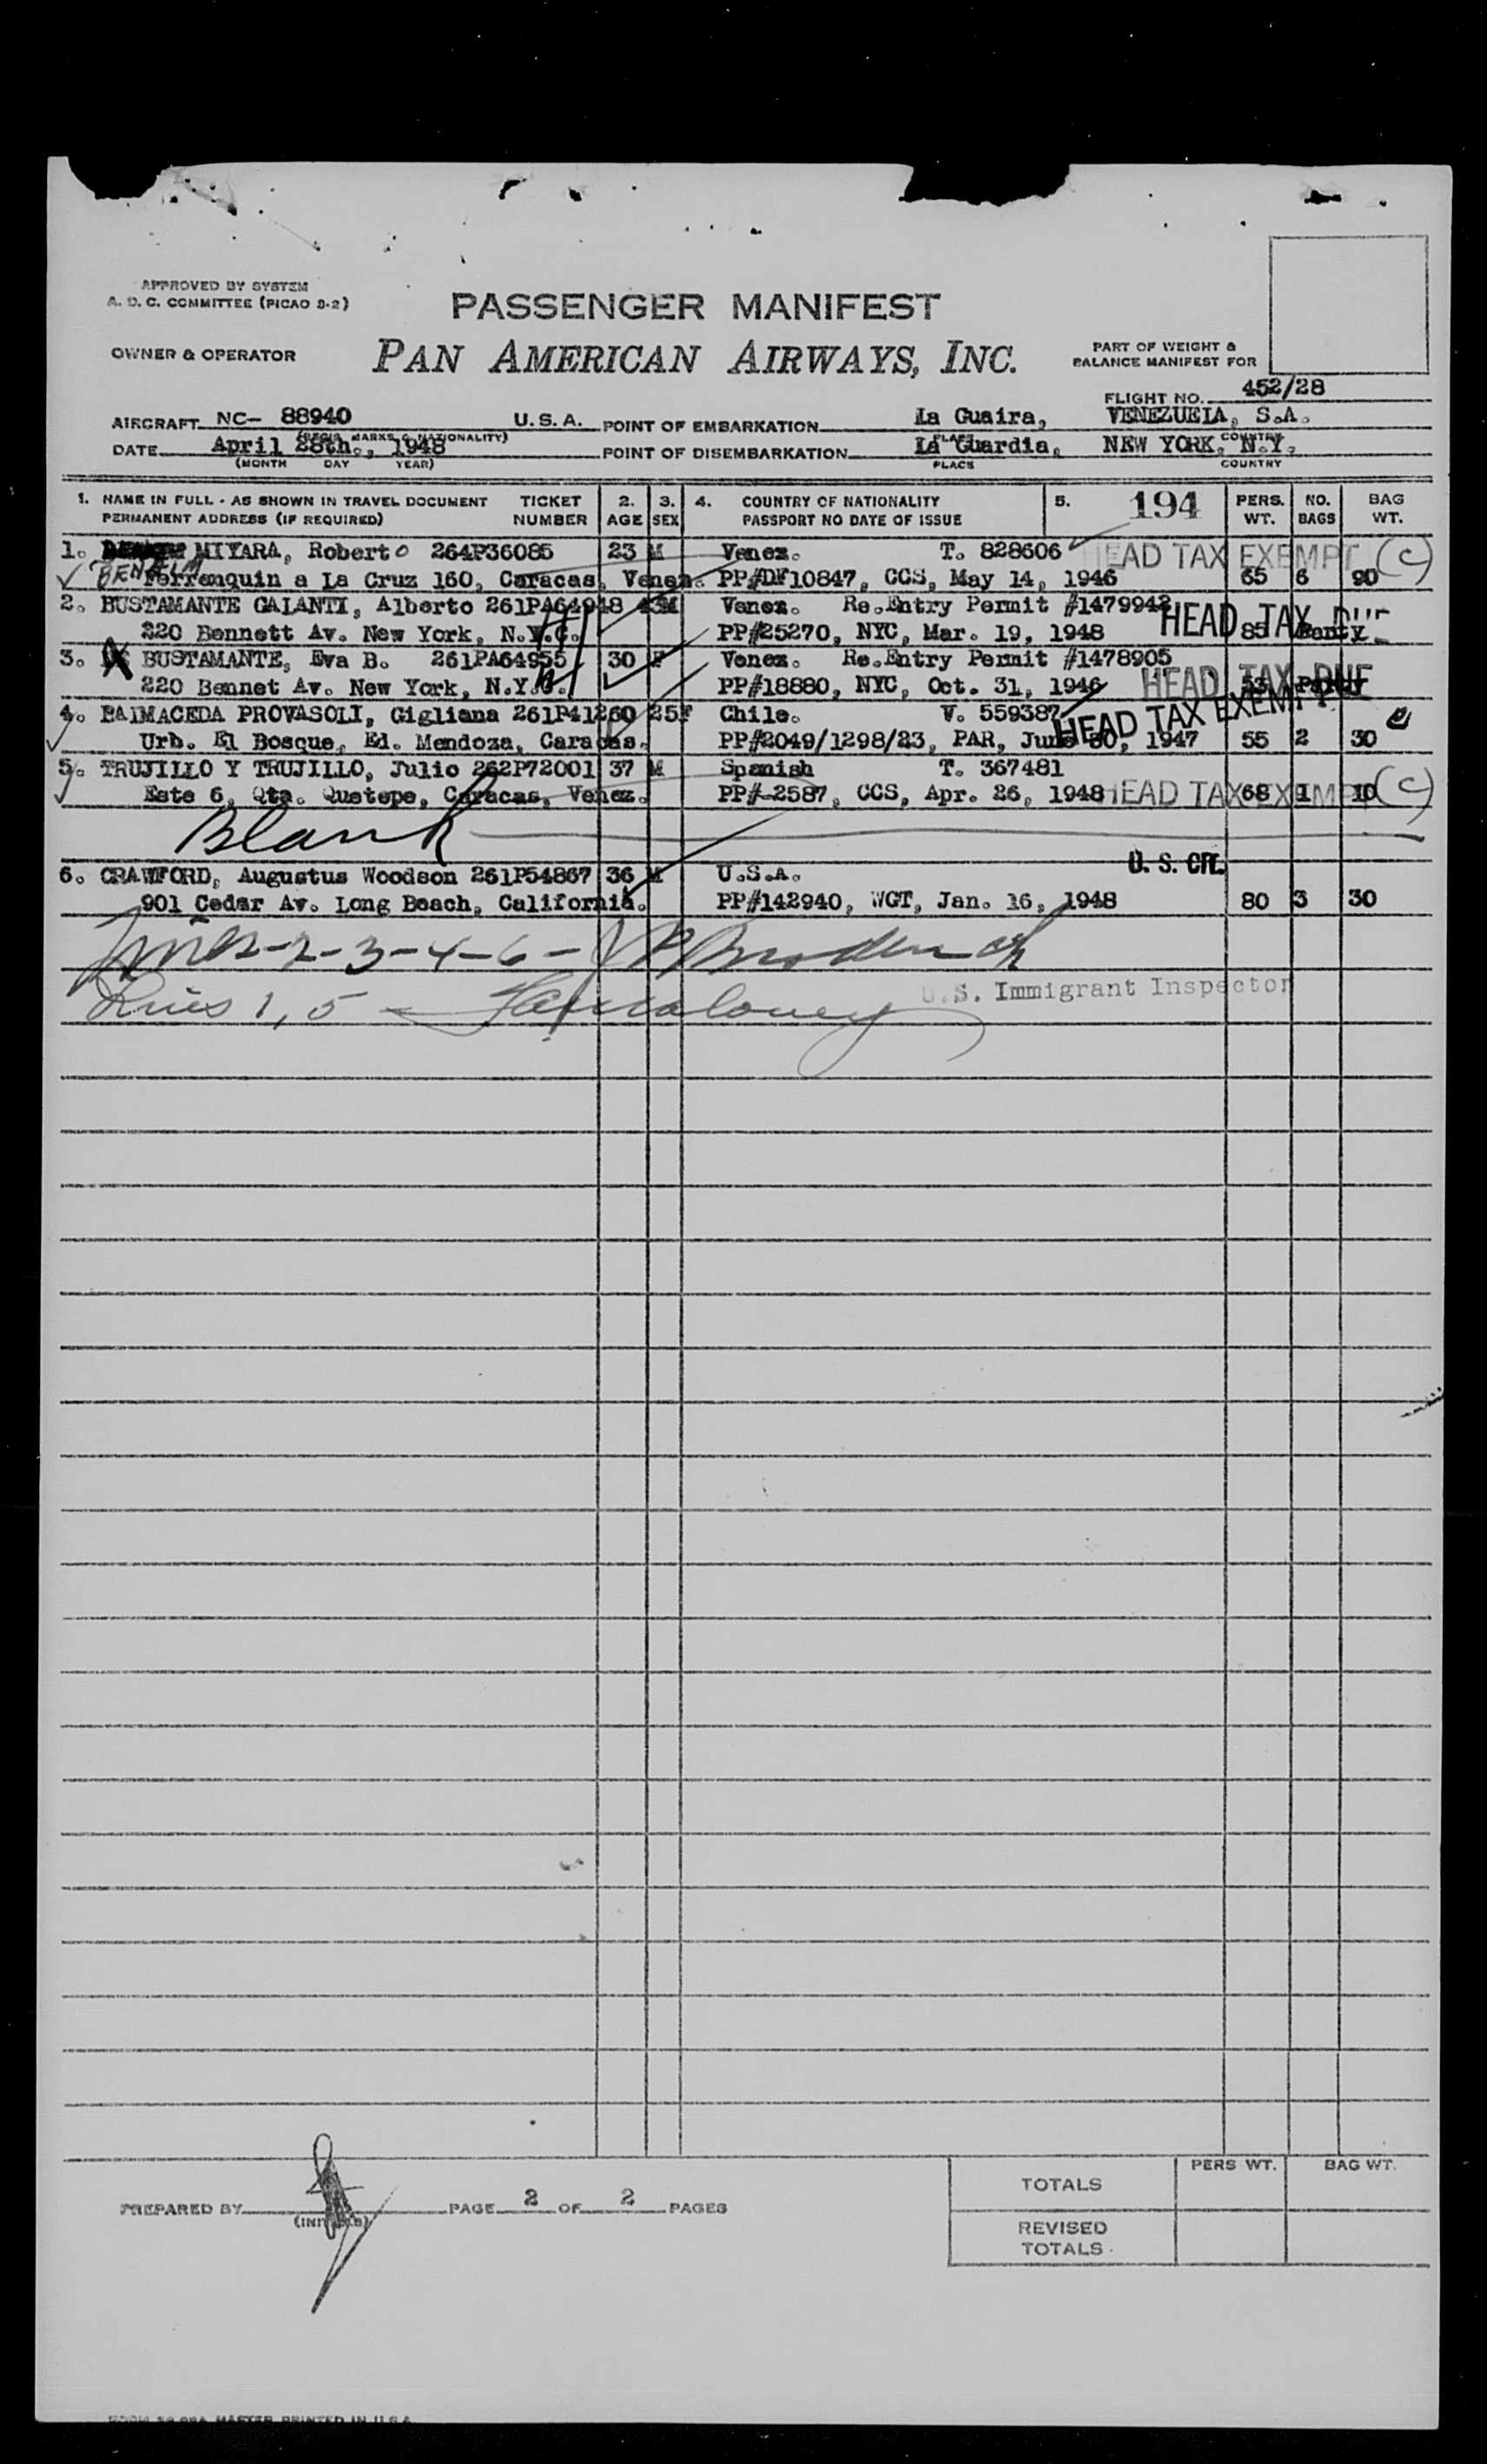 APPROVED BY SYSTEM
A. D. C. COMMITTEE (PICAO S-2)
PASSENGER MANIFEST
OWNER & OPERATOR
PAN AMERICAN AIRWAYS, INC.
PART OF WEIGHT &
BALANCE MANIFEST FOR
FLIGHT NO. 452/28
AIRCRAFT NC- 88940 U.S.A. POINT OF EMBARKATION La Guaira, VENEZUELA, S.A.
(REGIS. MARKS & NATIONALITY) PLACE COUNTRY
DATE April 28th., 1948 POINT OF DISEMBARKATION La Guardia, NEW YORK, N.Y.
(MONTH DAY YEAR) PLACE COUNTRY
1. NAME IN FULL - AS SHOWN IN TRAVEL DOCUMENT TICKET 2. 3. 4. COUNTRY OF NATIONALITY 5. 194 PERS. NO. BAG
PERMANENT ADDRESS (IF REQUIRED) NUMBER AGE SEX PASSPORT NO DATE OF ISSUE WT. BAGS WT.
1. MIYARA, Roberto 264P36085 23 M Venez. T. 828606 HEAD TAX EXEMPT (C)
BENZEIM Ferrenquin a La Cruz 160, Caracas, Venez. PP#DF10847, CCS, May 14, 1946 65 6 90
2. BUSTAMANTE GALANTI, Alberto 261PA64948 43 M Venez. Re.Entry Permit #1479942 HEAD TAX DUE
220 Bennett Av. New York, N.Y.C. PP#25270, NYC, Mar. 19, 1948 85
3. BUSTAMANTE, Eva B. 261PA64955 30 F Venez. Re.Entry Permit #1478905
220 Bennet Av. New York, N.Y.C. PP#18880, NYC, Oct. 31, 1946 HEAD TAX DUE
4. BALMACEDA PROVASOLI, Gigliana 261P41260 25 F Chile. V. 559387 HEAD TAX EXEMPT
Urb. El Bosque, Ed. Mendoza, Caracas. PP#2049/1298/23, PAR, June 30, 1947 55 2 30
5. TRUJILLO Y TRUJILLO, Julio 262P72001 37 M Spanish T. 367481
Este 6, Qta. Quetepe, Caracas, Venez. PP#-2587, CCS, Apr. 26, 1948 HEAD TAX EXEMPT 68 1 10 (C)
Blank
6. CRAWFORD, Augustus Woodson 261P54867 36 M U.S.A. U. S. CIT.
901 Cedar Av. Long Beach, California. PP#142940, WGT, Jan. 16, 1948 80 3 30
Lines-2-3-4-6-
Lines 1, 5 - U.S. Immigrant Inspector
PREPARED BY (INITIALS) PAGE 2 OF 2 PAGES
PERS WT. BAG WT.
TOTALS
REVISED
TOTALS